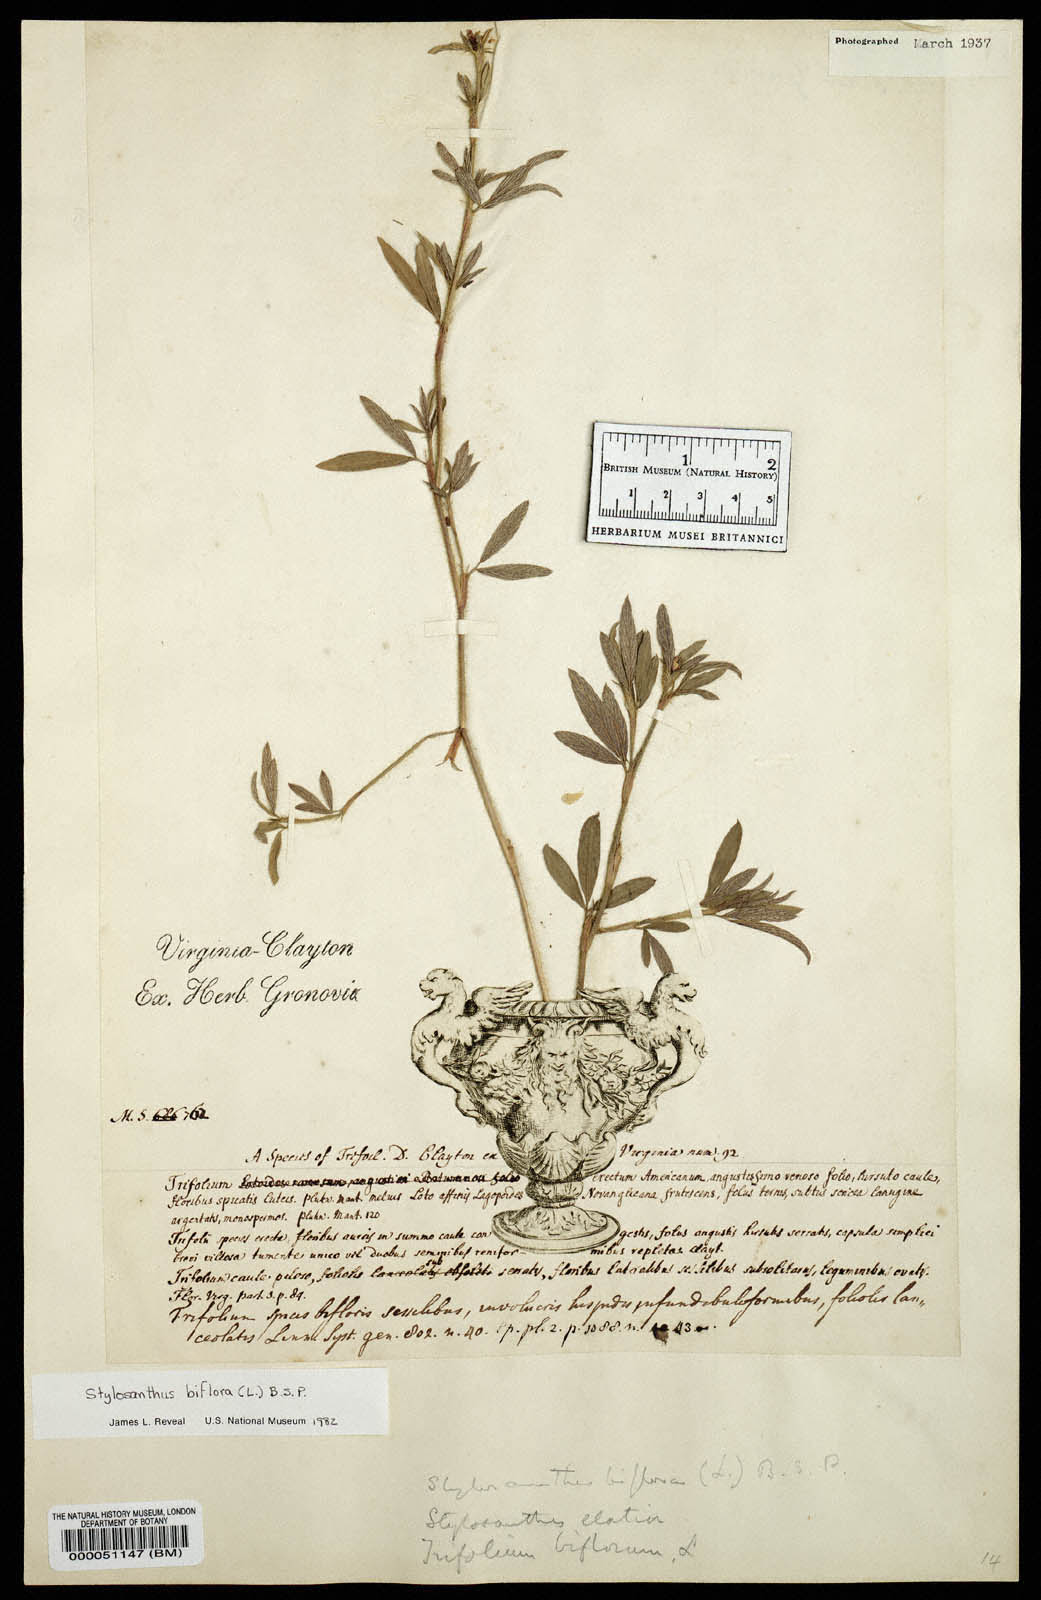 Photographed March 1937
1 2
BRITISH MUSEUM (NATURAL HISTORY)
1 2 3 4 5
HERBARIUM MUSEI BRITANNICI
Virginia-Clayton
Ex. Herb. Gronovii
M. S.
A Species of Trifoil. D. Clayton ex Virginia num. 92
Trifolium erectum Americanum, angustissimo venoso folio, hirsuto caule,
floribus spicatis luteis. plukn. Mant. melius Loto affinis Lagopoides Novanglicana, frutescens, folus ternis, subtus sericea lanugine
argentatis, monospermos. plukn. Mant. 120
Trifolii species erecta, floribus aureis in summo caule congestis, folus angustis hirsutis serratis, capsula simplici
brevi villosa tumente unico vel duobus seminibus reniformibus repleta. Clayt.
Trifolium caule piloso, foliolis serratis, floribus lateralibus sessilibus subsolitariis, leguminibus ovatis.
Flor. Virg. part. 2. p. 84.
Trifolium spicis bifloris sessilibus, involucris hispidis infundibuliformibus, foliolis lan=
ceolatis Linn. Syst. gen. 802. n. 40. Sp. pl. 2. p. 1088. n. 43.
Stylosanthus biflora (L.) B.S.P.
James L. Reveal U.S. National Museum 1982
Stylosanthes biflora (L.) B. S. P.
Stylosanthes elatior
Trifolium biflorum, L
THE NATURAL HISTORY MUSEUM, LONDON
DEPARTMENT OF BOTANY
000051147 (BM)
14